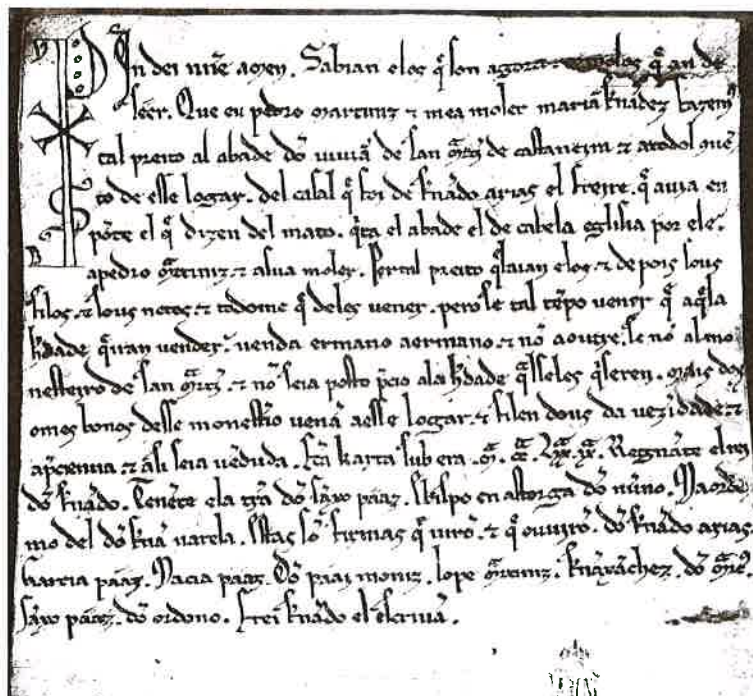 In dei nnē amen. Sabian elos q̄ son agora q̄ an de
seer. Que eu pedro martiniz ⁊ mea moler maria frnādez fazem9
tal preito al abade dō viviā de san mr̄tĩ de castaneira ⁊ atodol cōuē
to de esse logar. del casal q̄ foi de frnādo arias el freire. q̄ avia en
pōte el q̄ dizen del mato. q̄ta el abade el de cabela eglisia por ele.
apedro mr̄tiniz. ⁊ asua moler. Per tal preito q̄laian elos. ⁊ de pois sous
filos. ⁊ sous netos. ⁊ todome q̄ deles vener. pero se tal tēpo vener q̄ aq̄la
h̄dade q̄iran vender. venda ermano aermano. ⁊ nō aoutre. se nō almo
nesteiro de san mr̄tĩ. ⁊ nō seia posto p̄cio ala h̄dade q̄lleles q̄seren. mais dos
omes bonos desse monest̄io venā aesse logar. ⁊ filen dous da vezīdade. ⁊
ap̄cienna ⁊ asi seia vēduda. f̄ta karta sub era. M. CC. LXXX. IX. Regnāte el rei
dō frnādo. Tenēte ela tr̄ra dō sāxo paaz. Bispo en astorga dō nūno. Maorde
mo del dō frnā varela. Estas sō firmas q̄ virō. ⁊ q̄ ouvirō. dō frnādo arias.
Garcia paaz. Macia paaz. Dō paai moniz. lope mr̄tiniz. frnā sāchez. dō
sāxo paaz. dō ordono. frei frnādo el escrivā.